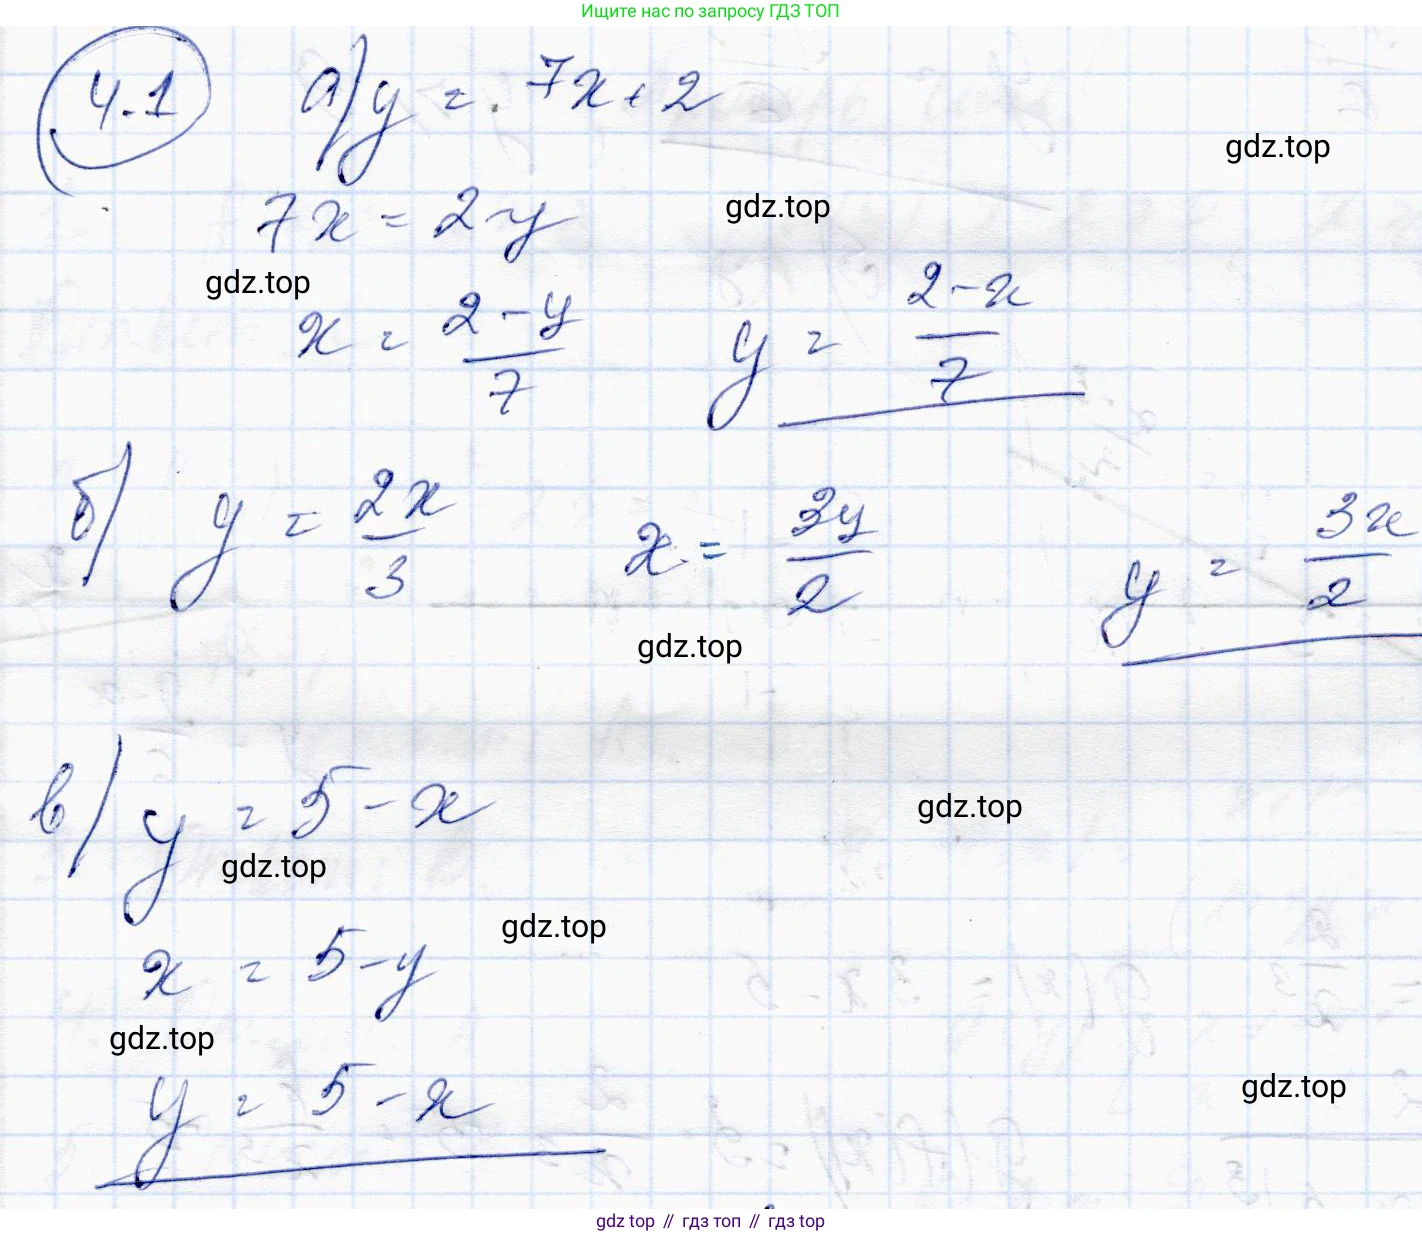 Ищите нас по запросу ГДЗ ТОП
4.1 а) y = 7x + 2
gdz.top
7x = 2 - y
gdz.top
gdz.top
x = (2 - y)/7 y = (2 - x)/7
б) y = 2x/3 x = 3y/2 y = 3x/2
gdz.top
в) y = 5 - x
gdz.top
gdz.top
x = 5 - y
gdz.top
gdz.top
y = 5 - x
gdz.top
gdz top // гдз топ // gdz top